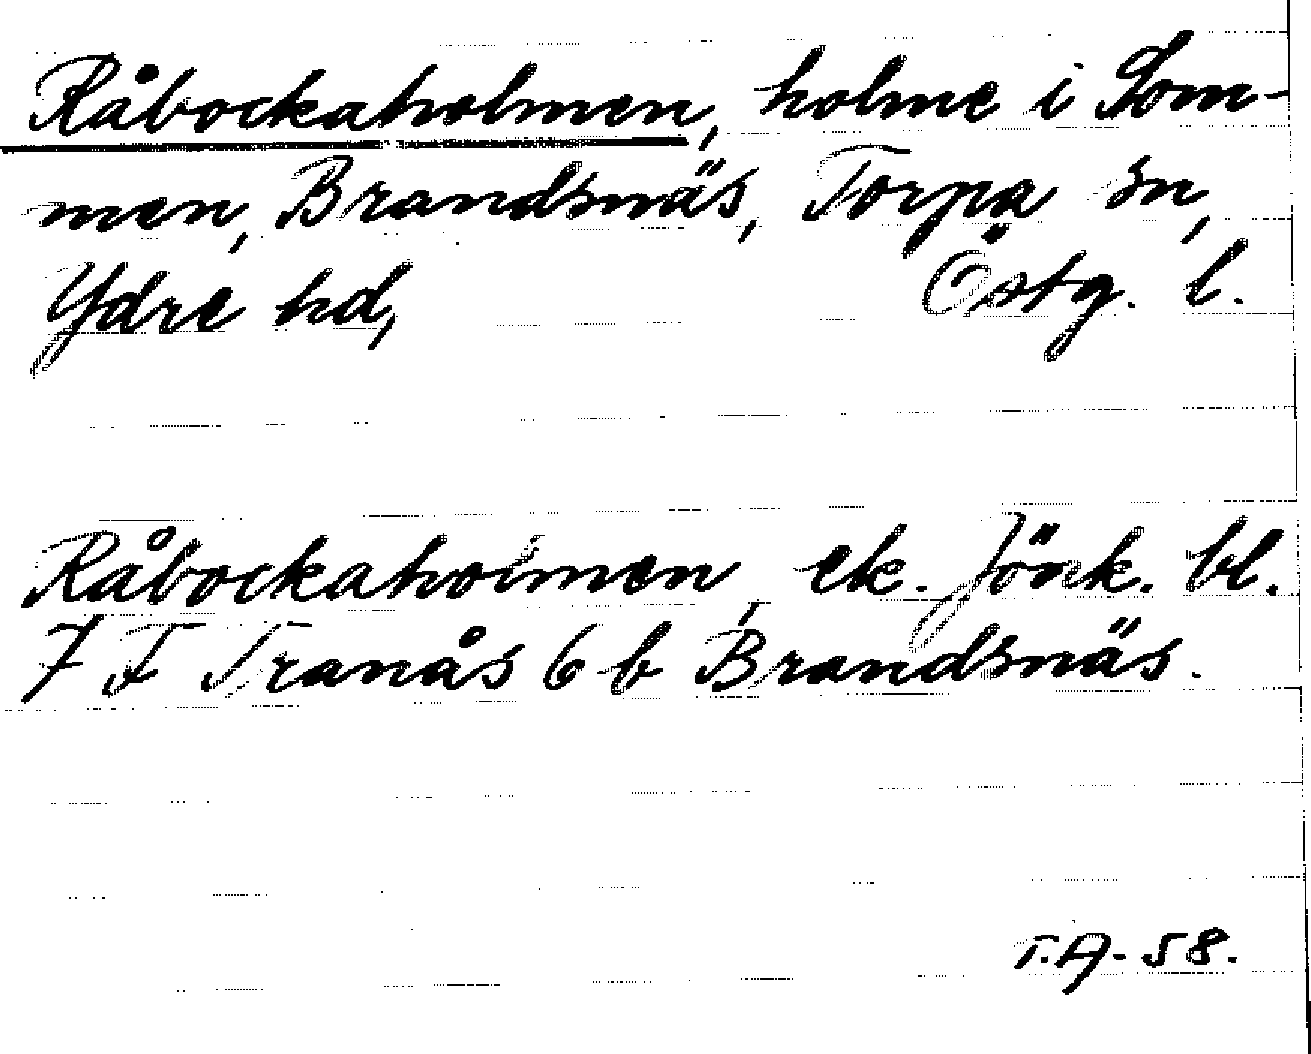 Råbockaholmen, holme i Som-
men, Brandsnäs, Torpa sn,
Ydre hd, Östg. l.
Råbockaholmen, ek. Jönk. bl.
7 F Tranås 6 b Brandsnäs.
T.A-58.